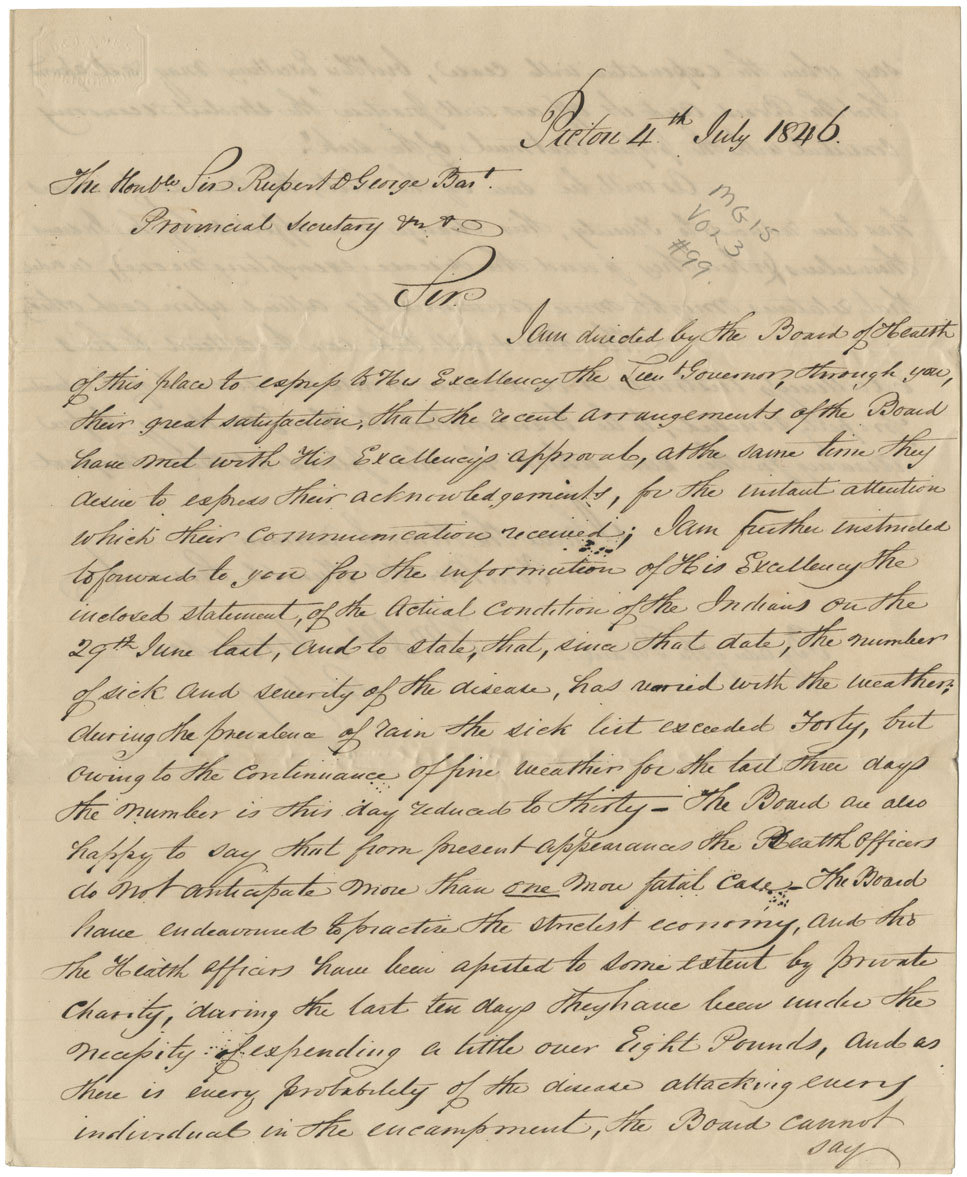 Pictou 4th July 1846.
The Honble. Sir Rupert D George Bart.
Provincial Secretary &c &c
MG 15
Vol 3
#99
Sir
I am directed by the Board of Health
of this place to express to His Excellency the Lieut Governor, through you,
their great satisfaction, that the recent arrangements of the Board
have met with His Excellency's approval, at the same time they
desire to express their acknowledgements, for the instant attention
which their communication received; I am further instructed
to forward to you for the information of His Excellency the
inclosed statement, of the actual condition of the Indians on the
29th June last, and to state, that, since that date, the number
of sick and severity of the disease, has varied with the weather;
during the prevalence of rain the sick list exceeded Forty, but
owing to the continuance of fine weather for the last three days
the number is this day reduced to thirty — The Board are also
happy to say that from present appearances the Health Officers
do not anticipate more than one more fatal case — The Board
have endeavoured to practise the strictest economy, and tho
the Health officers have been assisted to some extent by private
charity, during the last ten days they have been under the
necessity of expending a little over Eight Pounds, and as
there is every probability of the disease attacking every
individual in the encampment, the Board cannot
say